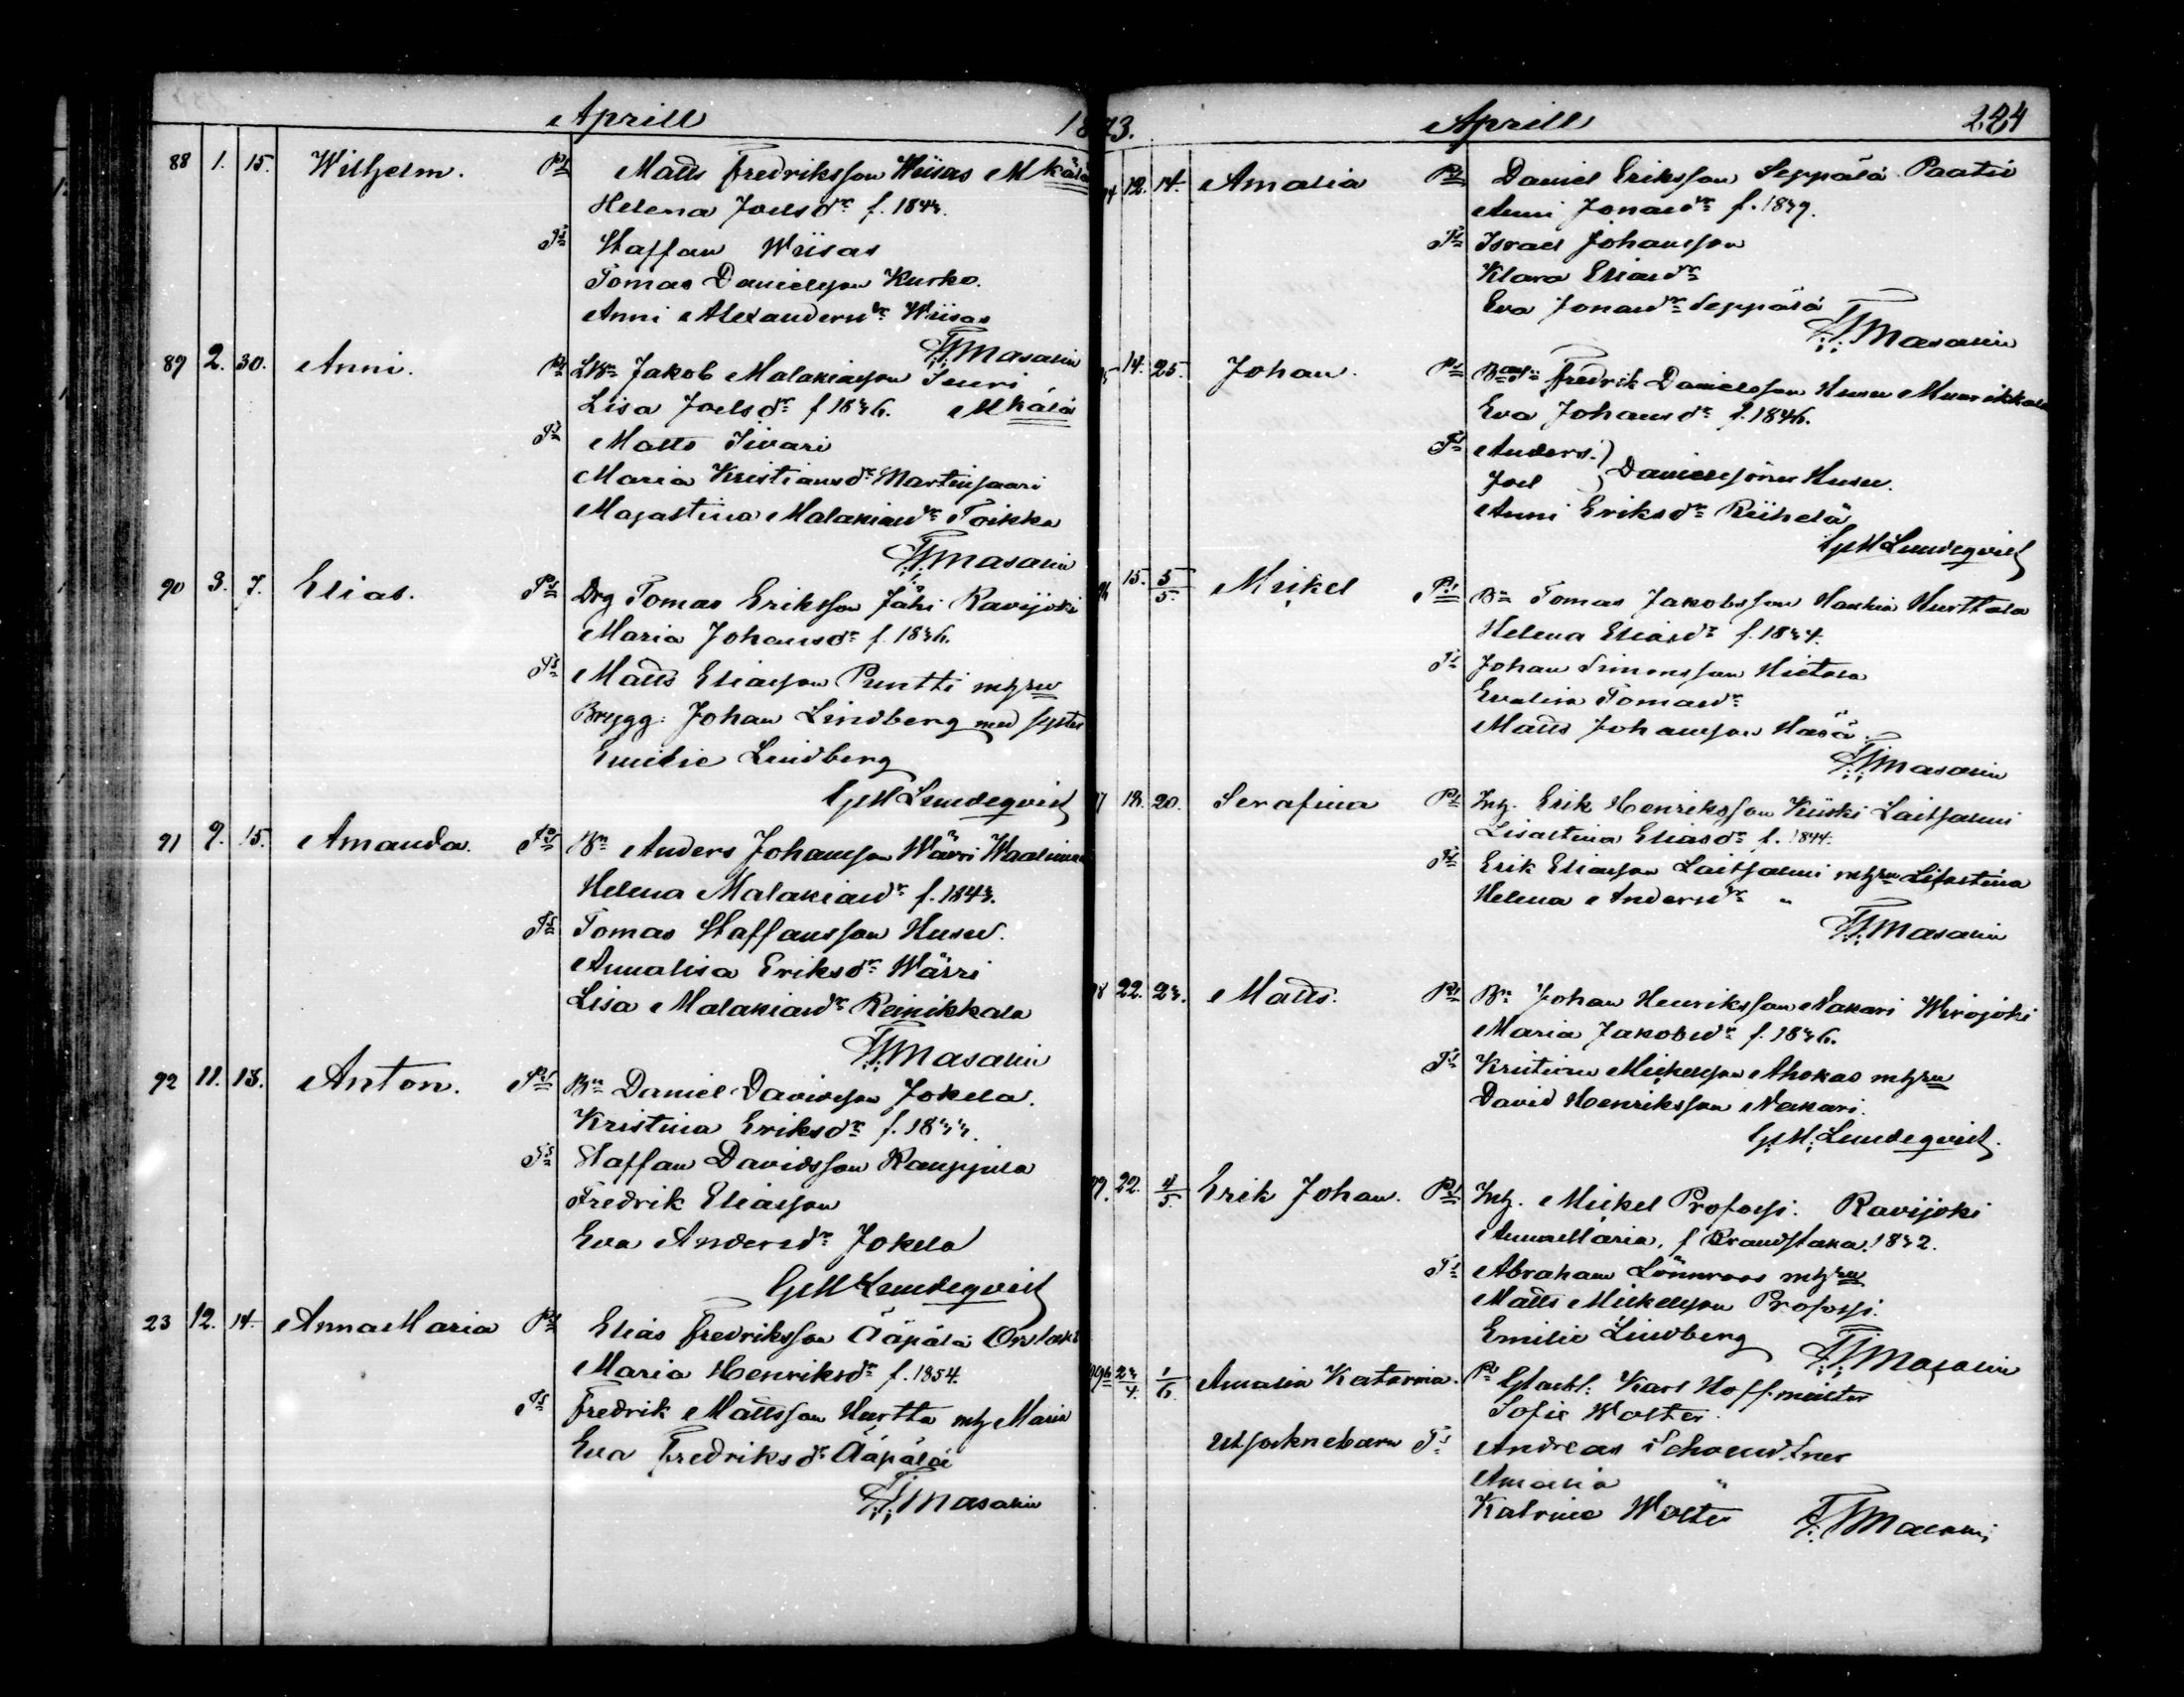 Aprill 1873.
88 1. 15. Wilhelm. Pr Matts Fredriksson Wiisas Mkälä
Helena Joelsdr f. 1843.
Ts Staffan Wiisas
Tomas Danielsson Kurko.
Anni Alexandersdr Wiisas
Masalin
89 2. 30. Anni. Pr Jakob Malakiasson Suuri
Lisa Joelsdr f 1836. Mkälä
Ts Matts Iivari
Maria Kristiansdr Martinsaari
Magastina Malakiasdr Toikka
Masalin
90 3. 7. Elias. Pr Drg Tomas Eriksson Jähi Ravijoki
Maria Johansdr f. 1836.
Ts Matts Eliasson Puntti
Brygg: Johan Lindberg med syster
Emilie Lindberg
GM Lundeqvist
91 9. 15. Amanda. Pr Bn Anders Johansson Wärri
Helena Malakiasdr f. 1843.
Ts Tomas Staffansson Husu.
Annalisa Eriksdr Wärri
Lisa Malakiasdr Reinikkala
Masalin
92 11. 18. Anton. Pr Bn Daniel Davidsson Jokela.
Kristina Eriksdr f. 1833.
Ts Staffan Davidsson Kauppila
Fredrik Eliasson
Eva Andersdr Jokela
GM Lundeqvist
23 12. 14. Anna Maria Pr Elias Fredriksson Ääpälä
Maria Henriksdr f. 1854.
Ts Fredrik Mattsson Hurtta Maria
Eva Fredriksdr Ääpälä
Masalin
Aprill 224
12. 14. Amalia Pr Daniel Eriksson Seppälä Paatio
Anni Jonasdr f. 1839.
Ts Israel Johansson
Klara Eliasdr
Eva Jonasdr Seppälä
Masalin
14. 25. Johan. Pr Fredrik Danielsson Husu
Eva Johansdr f. 1846.
Ts Anders.
Joel Danielssöner Husu.
Anni Eriksdr Riihelä
GM Lundeqvist
15. 5/5. Mickel Pr Bn Tomas Jakobsson Hurttala
Helena Eliasdr f. 1834.
Ts Johan Simonsson Hietala
Evalisa Tomasdr
Matts Johansson
Masalin
18. 20. Serafina Pr Erik Henriksson Kiiski Laitsalmi
Lisastina Eliasdr f. 1844.
Ts Erik Eliasson Laitsalmi Lisastina
Helena Andersdr "
Masalin
22. 23. Matts. Pr Bn Johan Henriksson Nakari Wirojoki
Maria Jakobsdr f. 1836.
Ts Mickelsson Ahokas
David Henriksson Nakari.
GM. Lundeqvist.
22. 4/5. Erik Johan. Pr Mickel Profossi. Ravijoki
Anna Maria, f Brandstaka. 1832.
Ts Abraham Lönnroos
Matts Mickelsson Profossi.
Emilie Lindberg
Masalin
23/4. 1/6. Amalia Katarina. Pr Karl Hoffmeister
Sofie Wolter.
Utsocknebarn Ts Andreas
Amalia "
Katrine Wolter
Masalin